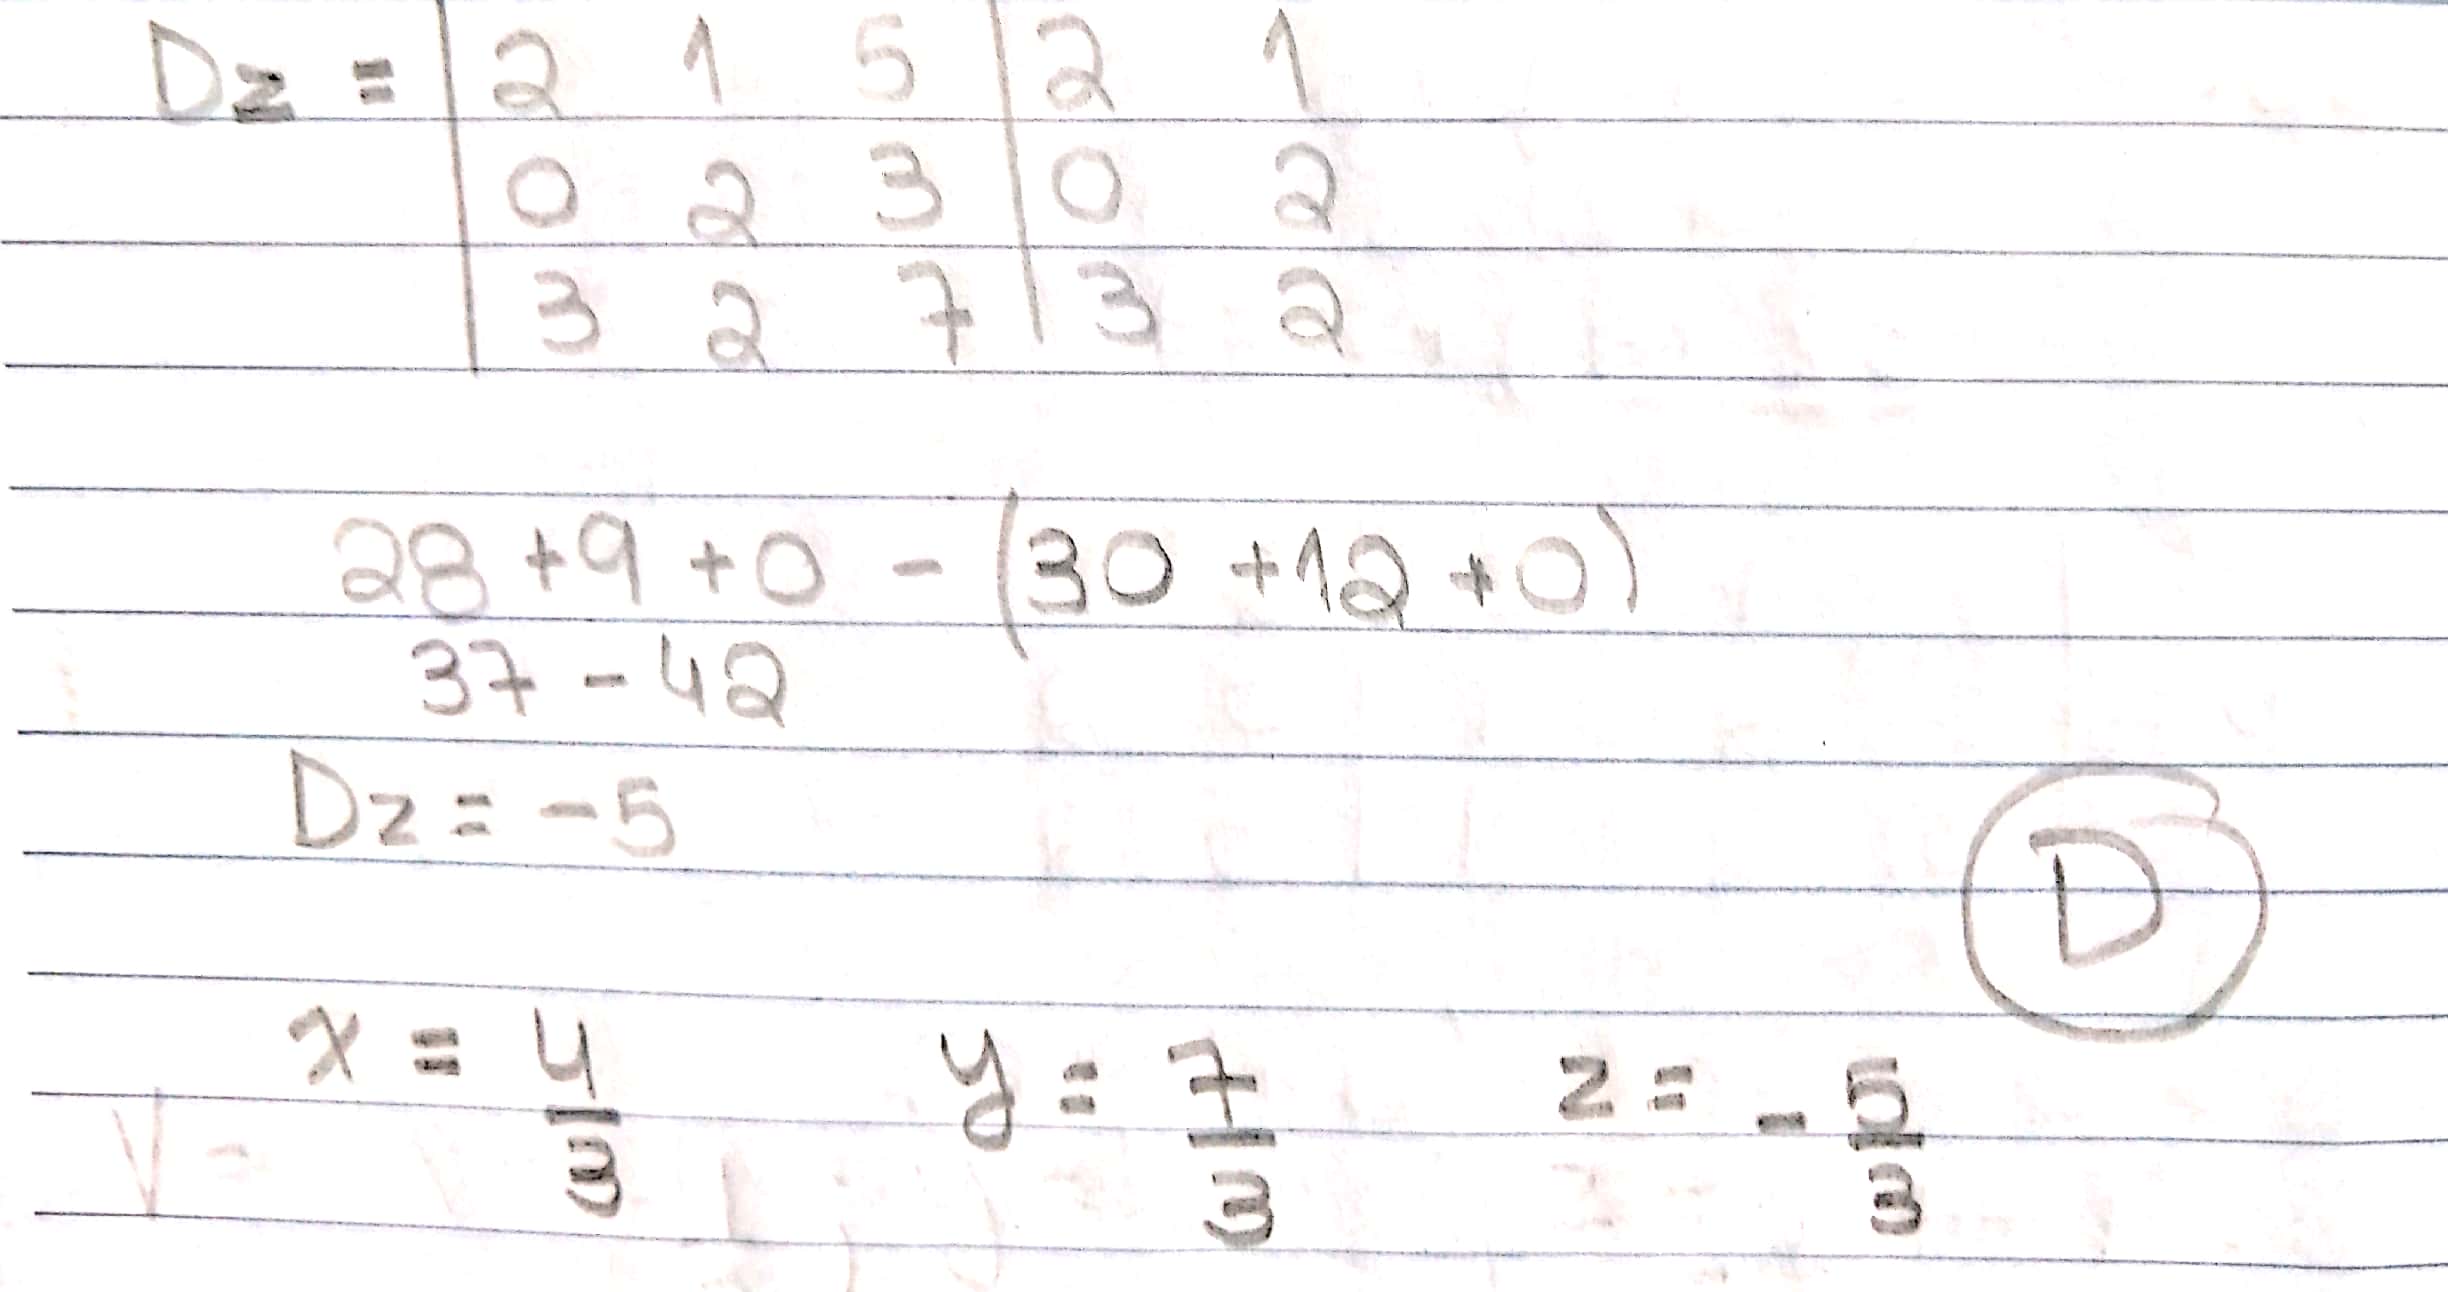 Dz = | 2 1 5 | 2 1
0 2 3 | 0 2
3 2 7 | 3 2
28 + 9 + 0 - (30 + 12 + 0)
37 - 42
Dz = -5
D
x = 4/3 y = 7/3 z = -5/3